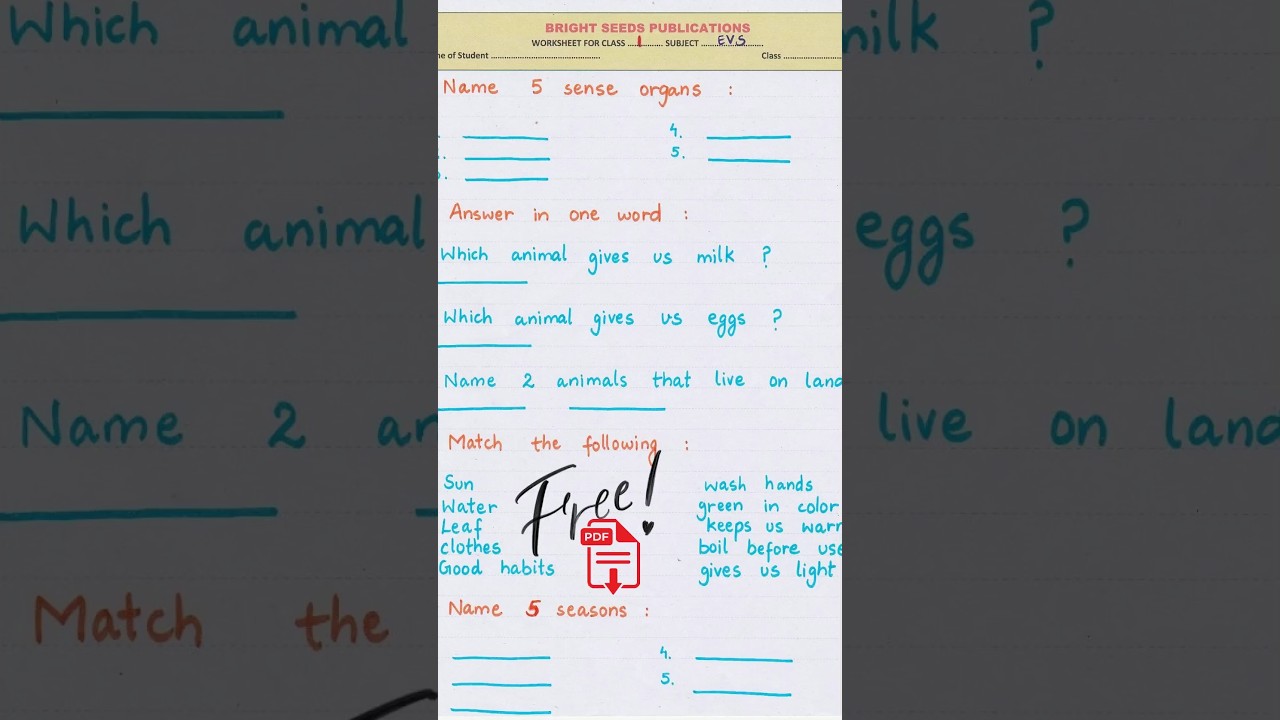 Which animal
milk ?
Which animal
eggs ?
Name 2
live on land
Match the
BRIGHT SEEDS PUBLICATIONS
WORKSHEET FOR CLASS ....1........ SUBJECT ....E.V.S.........
of Student ............................................
Class ..............................
Name 5 sense organs :
4.
5.
Answer in one word :
Which animal gives us milk ?
Which animal gives us eggs ?
Name 2 animals that live on land
Match the following :
Sun wash hands
Water green in color
Leaf keeps us warm
clothes boil before use
Good habits gives us light
Free!
PDF
Name 5 seasons :
4.
5.